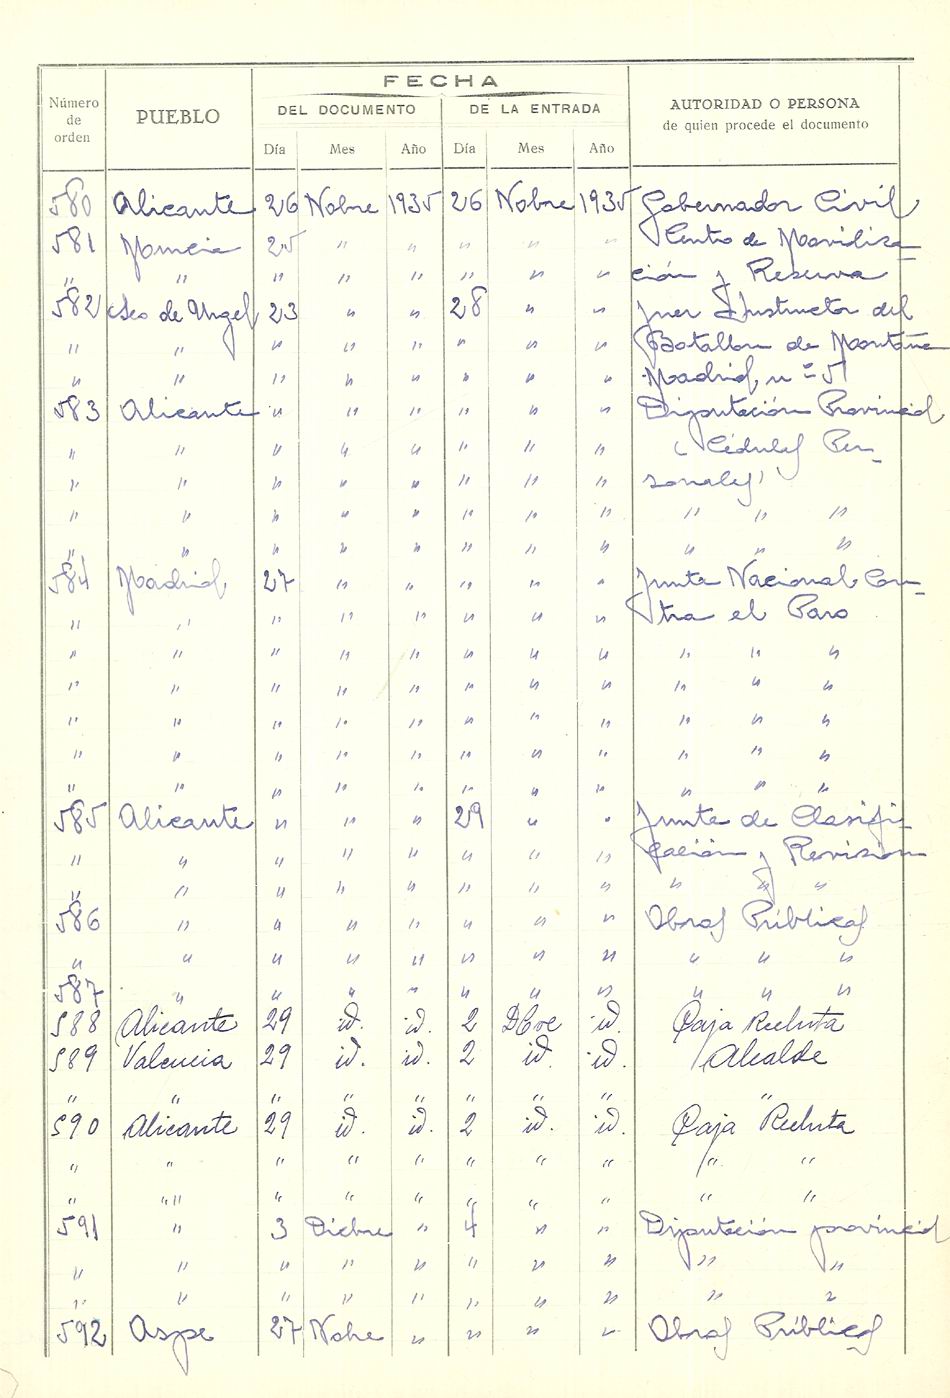 FECHA
Número de orden PUEBLO DEL DOCUMENTO DE LA ENTRADA AUTORIDAD O PERSONA de quien procede el documento
Día Mes Año Día Mes Año
580 Alicante 26 Nobre 1935 26 Nobre 1935 Gobernador Civil
581 Murcia 25 " " " " " Centro de Moviliza-
" " " " " " " " ción y Reserva
582 Seo de Urgel 23 " " 28 " " Juez Instructor del
" " " " " " " " Batallon de Montaña
" " " " " " " " Madrid, nº 5
583 Alicante " " " " " " Diputación Provincial
" " " " " " " " (Cédulas Per-
" " " " " " " " sonales)
" " " " " " " " " " "
" " " " " " " " " " "
584 Madrid 27 " " " " " Junta Nacional Con-
" " " " " " " " tra el Paro
" " " " " " " " " " "
" " " " " " " " " " "
" " " " " " " " " " "
" " " " " " " " " " "
" " " " " " " " " " "
585 Alicante " " " 29 " " Junta de Clasifi-
" " " " " " " " cación y Revision
" " " " " " " " " " "
586 " " " " " " " Obras Públicas
" " " " " " " " " " "
587 " " " " " " " " " "
588 Alicante 29 id. id. 2 Dbre id. Caja Recluta
589 Valencia 29 id. id. 2 id. id. Alcalde
" " " " " " " " "
590 Alicante 29 id. id. 2 id. id. Caja Recluta
" " " " " " " " " "
" " " " " " " " " " "
591 " 3 Dicbre " 4 " " Diputación provincial
" " " " " " " " " "
" " " " " " " " " "
592 Aspe 27 Nobre " " " " Obras Públicas